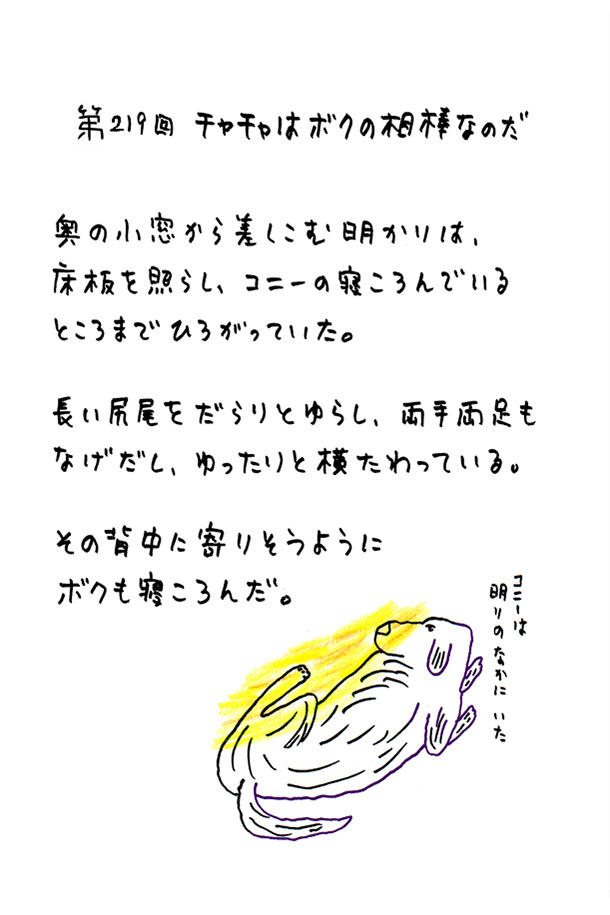 第219回 チャチャはボクの相棒なのだ
奥の小窓から差しこむ明かりは、
床板を照らし、コニーの寝ころんでいる
ところまでひろがっていた。
長い尻尾をだらりとゆらし、両手両足も
なげだし、ゆったりと横たわっている。
その背中に寄りそうように
ボクも寝ころんだ。
コニーは
明りのなかに いた